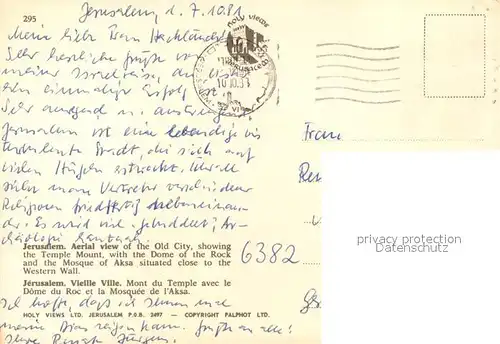 295
Jerusalem, d. 7.10.81
Meine liebe Frau
Sehr herzliche Grüße von
meiner Israelreise, die
ein einmaliger Erfolg ist.
Sehr anregend u. anstrengend.
Jerusalem ist eine lebendige bis
turbulente Stadt, die sich auf
vielen Hügeln erstreckt. Überall
sieht man Vertreter verschiedener
Religionen friedfertig nebeneinan-
der. Es wird viel gebuddelt, Ar-
chäologie
HOLY VIEWS
Frau
6382
privacy protection
Datenschutz
Jerusalem. Aerial view of the Old City, showing
the Temple Mount, with the Dome of the Rock
and the Mosque of Aksa situated close to the
Western Wall.
Jérusalem. Vieille Ville. Mont du Temple avec le
Dôme du Roc et la Mosquée de l'Aksa.
Ich hoffe, daß ich Ihnen mal
meine Dias zeigen kann. Grüße an alle!
HOLY VIEWS LTD. JERUSALEM P.O.B. 2497 — COPYRIGHT PALPHOT LTD.
Ihre Renate